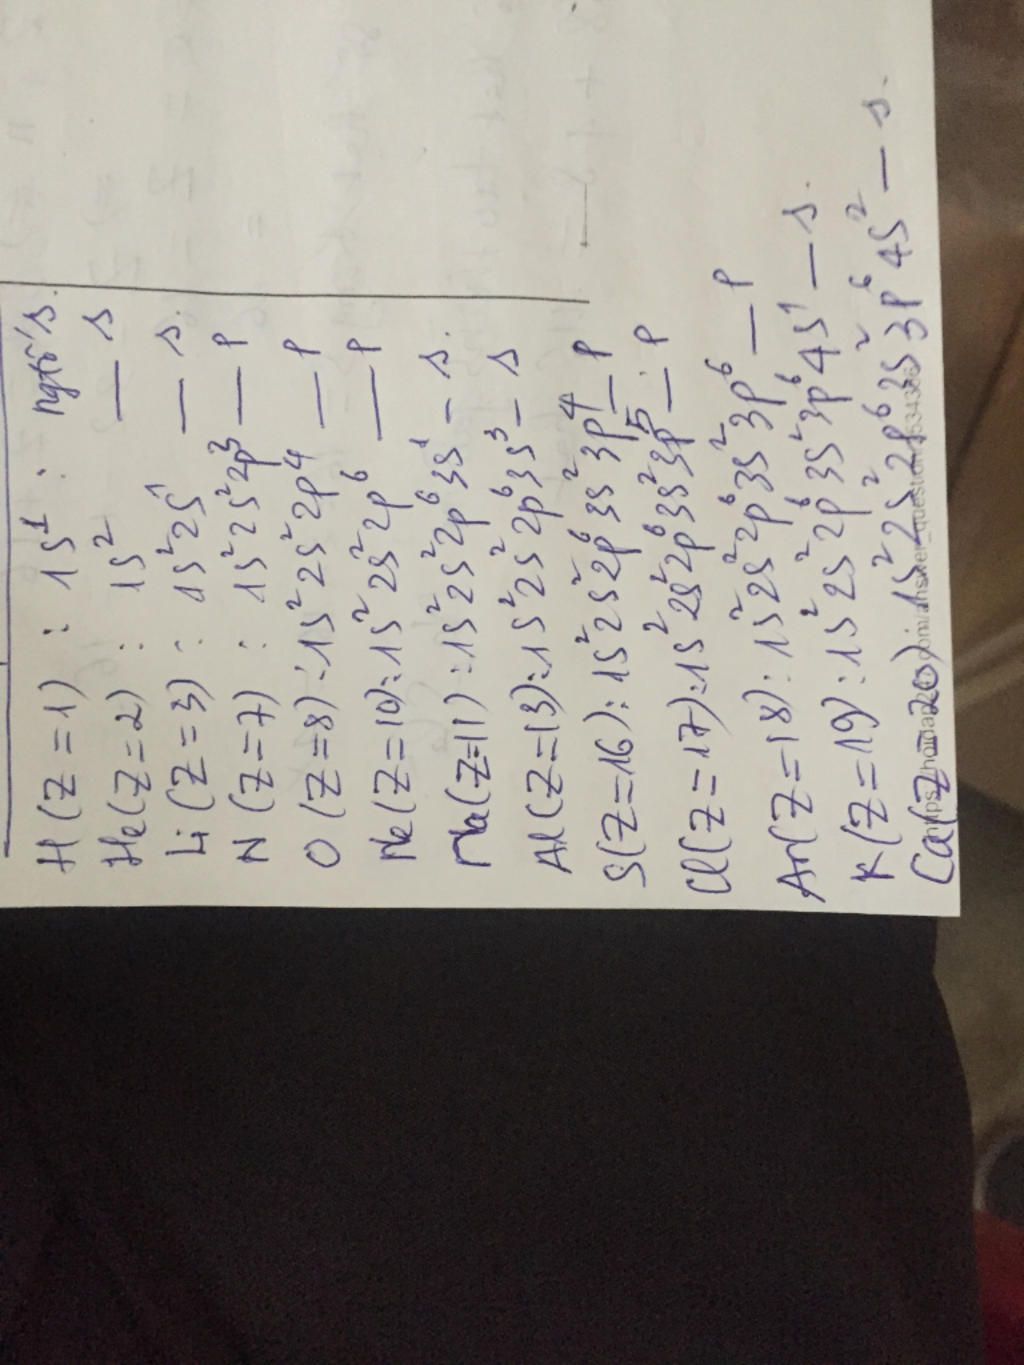 H (Z = 1) : 1s¹ : ngtố s.
He (Z = 2) : 1s² — s
Li (Z = 3) : 1s²2s¹ — s.
N (Z = 7) : 1s²2s²2p³ — p
O (Z = 8) : 1s²2s²2p⁴ — p
Ne (Z = 10) : 1s²2s²2p⁶ — p
Na (Z = 11) : 1s²2s²2p⁶3s¹ — s.
Al (Z = 13) : 1s²2s²2p⁶3s³ — s
S (Z = 16) : 1s²2s²2p⁶3s²3p⁴ — p
Cl (Z = 17) : 1s²2s²2p⁶3s²3p⁵ — p
Ar (Z = 18) : 1s²2s²2p⁶3s²3p⁶ — p
K (Z = 19) : 1s²2s²2p⁶3s²3p⁶4s¹ — s.
Ca (Z = 20) : 1s²2s²2p⁶3s²3p⁶4s² — s.